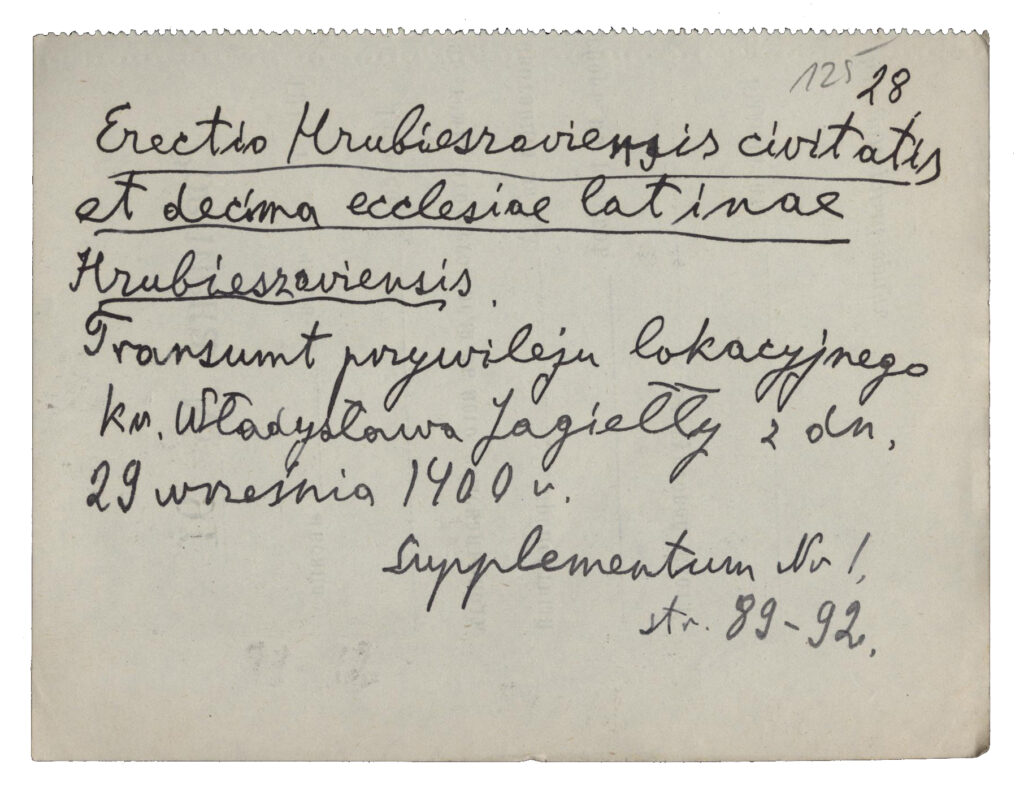 125 28
Erectio Hrubieszoviensis civitatis
et decima ecclesiae latinae
Hrubieszoviensis.
Transumt przywileju lokacyjnego
kr. Władysława Jagiełły z dn.
29 września 1400 r.
Supplementum Nr 1,
str. 89-92.